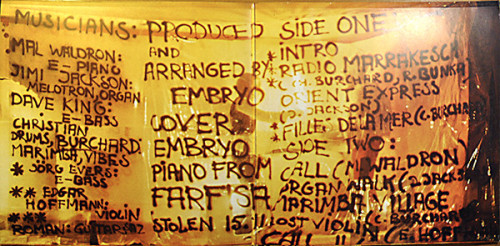 MUSICIANS:
MAL WALDRON:
E-PIANO
JIMI JACKSON:
MELOTRON, ORGAN
DAVE KING:
E-BASS
CHRISTIAN
BURCHARD:
DRUMS,
MARIMBA, VIBES
* JÖRG EVERS:
E-BASS
** EDGAR
HOFFMANN:
*** VIOLIN
ROMAN: GUITAR, SAZ
PRODUCED
AND
ARRANGED BY
EMBRYO
COVER:
EMBRYO
PIANO FROM
FARFISA
STOLEN 15. 11
SIDE ONE
* INTRO
* RADIO MARRAKESCH
* (CH. BURCHARD, R. BUNKA)
ORIENT EXPRESS
(J. JACKSON)
* FILLE DE LA MER (C. BURCHARD)
SIDE TWO:
CALL (M. WALDRON)
ORGAN WALK (J. JACKSON)
MARIMBA VILLAGE
(C. BURCHARD)
LOST VIOLIN
(E. HOFF
CALL